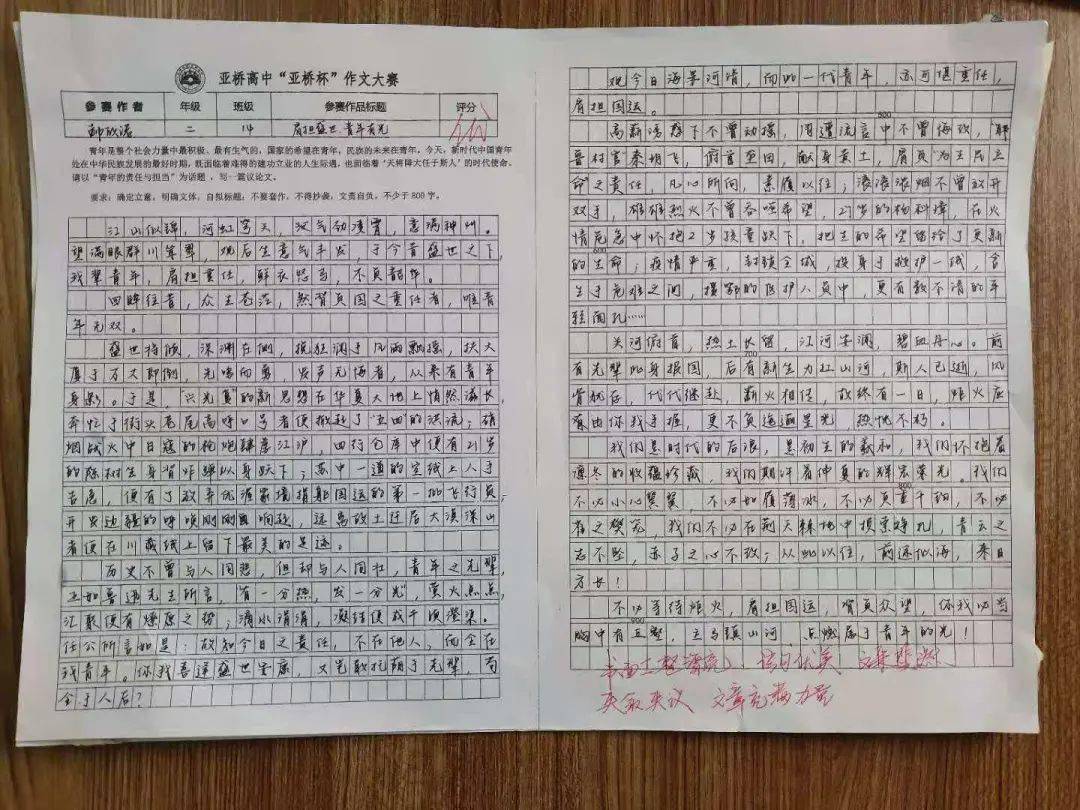 亚桥高中“亚桥杯”作文大赛
参赛作者 年级 班级 参赛作品标题 评分
二 14 肩担盛世,青年有光
青年是整个社会力量中最积极、最有生气的,国家的希望在青年,民族的未来在青年。今天,新时代中国青年
处在中华民族发展的最好时期,既面临着难得的建功立业的人生际遇,也面临着“天将降大任于斯人”的时代使命。
请以“青年的责任与担当”为话题,写一篇议论文。
要求:确定立意,明确文体,自拟标题;不要套作,不得抄袭,文责自负,不少于 800 字。
江山似锦,河虹穹天,汉气动凌霄,意满神州。
望满眼群川耸翠,观后生意气丰发,于今昔盛世之下,
我辈青年,肩担重任,鲜衣怒马,不负韶华。
回眸往昔,众生苍茫,然背负国之重任者,唯青
年无双。
盛世将倾,深渊在侧,挽狂澜于风雨飘摇,扶大
厦于万丈即倒,先啼向勇,发声无悔者,从来有青年
身影。于是,“兴光复”的新思想在华夏大地上悄然滋长,
奔忙于街头巷尾高呼口号者便掀起了“五四”的洪流;硝
烟战火中日寇的枪炮肆虐江沪,四行仓库中便有21岁
的陈树生身背炸弹以身跃下;苏中一道的空纸上人手
告急,便有了放弃优渥家境捐躯国运的第一批飞行员;
开发边疆的呼唤刚刚响起,远离故土迁居大漠深山
者便在川藏线上留下最美的足迹。
历史不曾与人同悲,但却与人同壮,青年之光辉,
正如鲁迅先生所言,“有一分热,发一分光”,萤火点点,
汇聚便有燎原之势;滴水涓涓,凝结便成千顷澄深。
任公所言如是:故知今日之责任,不在他人,而全在
我青年。你我喜逢盛世安康,又岂敢扎翔于先辈,苟
全于人后?
观今日海晏河清,而此一代青年,亦可堪重任,
肩担国运。
高薪清群下不曾动摇,周遭流言中不曾悔改,“耶
鲁村官”秦玥飞,俯首至田,献身黄土,肩负“为生民立
命”之责任,凡心所向,素履以往;滚滚浓烟不曾放开
双手,雄雄烈火不曾吞咽希望,27岁的杨科璋,在火
情危急中怀抱2岁孩童跃下,把生的希望留给了更新
的生命;疫情严重,封锁全城,投身于救护一线,舍
生于危难之间,援鄂的医护人员中,更有数不清的年
轻面孔……
关河俯首,热土长留,江河安澜,碧血丹心。前
有先辈以身报国,后有新生力扛山河,斯人已逝,风
骨犹存,代代继赴,薪火相传,故终有一日,炬火应
当由你我手握,更不负迢遥星光,热忱不朽。
我们是时代的后浪,是初生的羲和,我们怀抱着
凛冬的收蕴珍藏,我们期许着仲夏的辉宏荣光。我们
不必小心翼翼,不必如履薄冰,不必负重千钧,不必
有之樊笼,我们不必在荆天棘地中损索挣扎,青云之
志不坠,赤子之心不改;从此以往,前途似海,来日
方长!
不必等待炬火,肩担国运,背负众望,你我必当
胸中有丘壑,立马镇山河,点燃属于青年的光!
500
600
700
800
900
书面工整漂亮,语句优美,文采斐然
夹叙夹议 文章充满力量